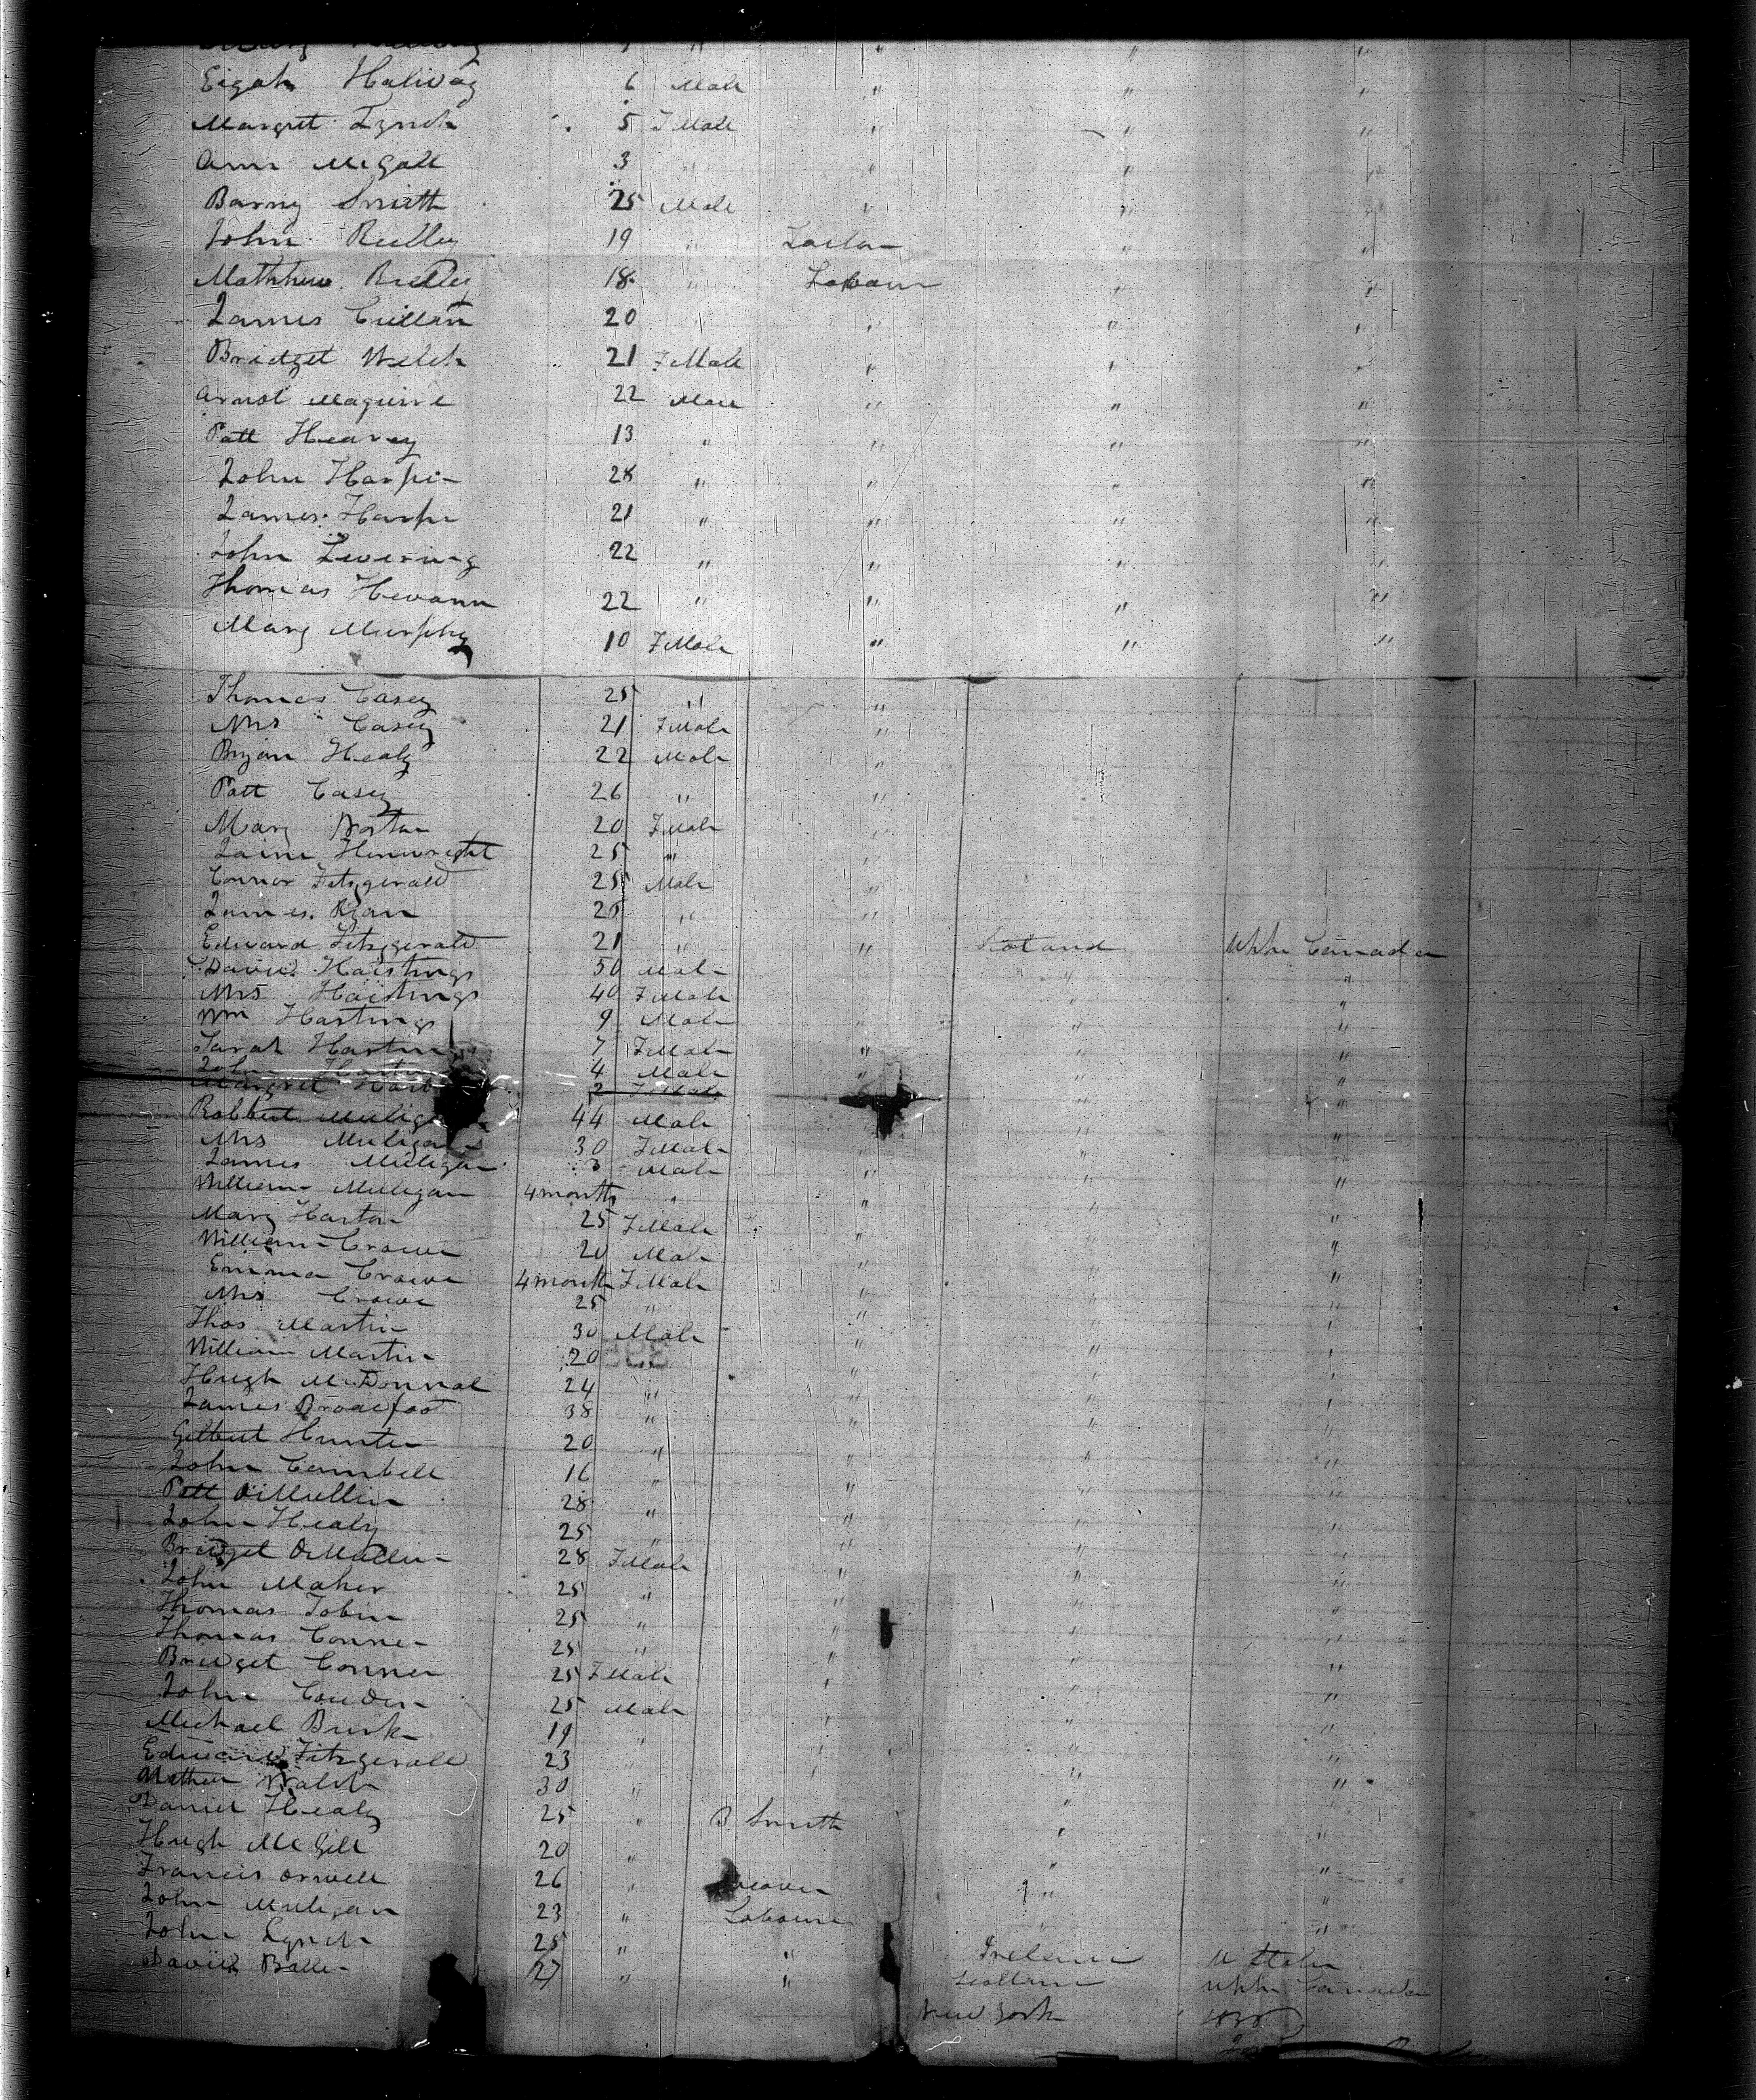 Eigah Halivag 6 Male " " "
Margret Lynch 5 FMale " " "
Ann McGall 3 " " " "
Barny Smith 25 Male " " "
John Reilley 19 " Tailor " "
Matthew Brelley 18 " Labour " "
James Cullen 20 " " " "
Bridget Welch 21 FMale " " "
Arnot Maguire 22 Male " " "
Patt Heavey 13 " " " "
John Harper 28 " " " "
James Harper 21 " " " "
John Levering 22 " " " "
Thomas Hevann 22 " " " "
Mary Murphy 10 FMale " " "
Thomas Casey 25 " "
Mrs Casey 21 FMale "
Bryan Healy 22 Male "
Patt Casey 26 " "
Mary Norton 20 FMale "
Jaine Henwright 25 " "
Connor Fitzgerald 25 Male "
James Ryan 26 " "
Edward Fitzgerald 21 " " Scotland Upper Canada
David Haistings 50 Male " "
Mrs Haistings 40 FMale " "
Wm Hastings 9 Male " " "
Sarah Hastings 7 FMale " " "
John 4 Male " " "
Margret 2 FMale " "
Robbert Muligan 44 Male " "
Mrs Muligan 30 FMale " " "
James Muligan 3 Male " "
William Muligan 4 months " " " "
Mary Harton 25 FMale " " "
William Crowe 20 Male " " "
Emma Crowe 4 month FMale " " "
Mrs Crowe 25 " " " "
Thos Martin 30 Male " " "
William Martin 20 " " "
Hugh McDonnal 24 " " " "
James Broadfoot 38 " " " "
Gilbert Hunter 20 " " " "
John Cambell 16 " " " "
Patt OMullin 28 " " " "
John Healy 25 " " " "
Bridget OMullin 28 FMale " " "
John Maher 25 " " " "
Thomas Tobin 25 " " " "
Thomas Conner 25 " " " "
Bridget Conner 25 FMale " " "
John Couden 25 Male " " "
Michael Burk 19 " " " "
Edward Fitzgerald 23 " " " "
Mathew Walsh 30 " " "
Daniel Healy 25 " B Smith " "
Hugh McGill 20 " " "
Francis Orwell 26 " Weaver " "
John Muligan 23 " Labourer " "
John Lynch 25 " " Ireland U States
David Baller 27 " " Scotland Upper Canada
New York